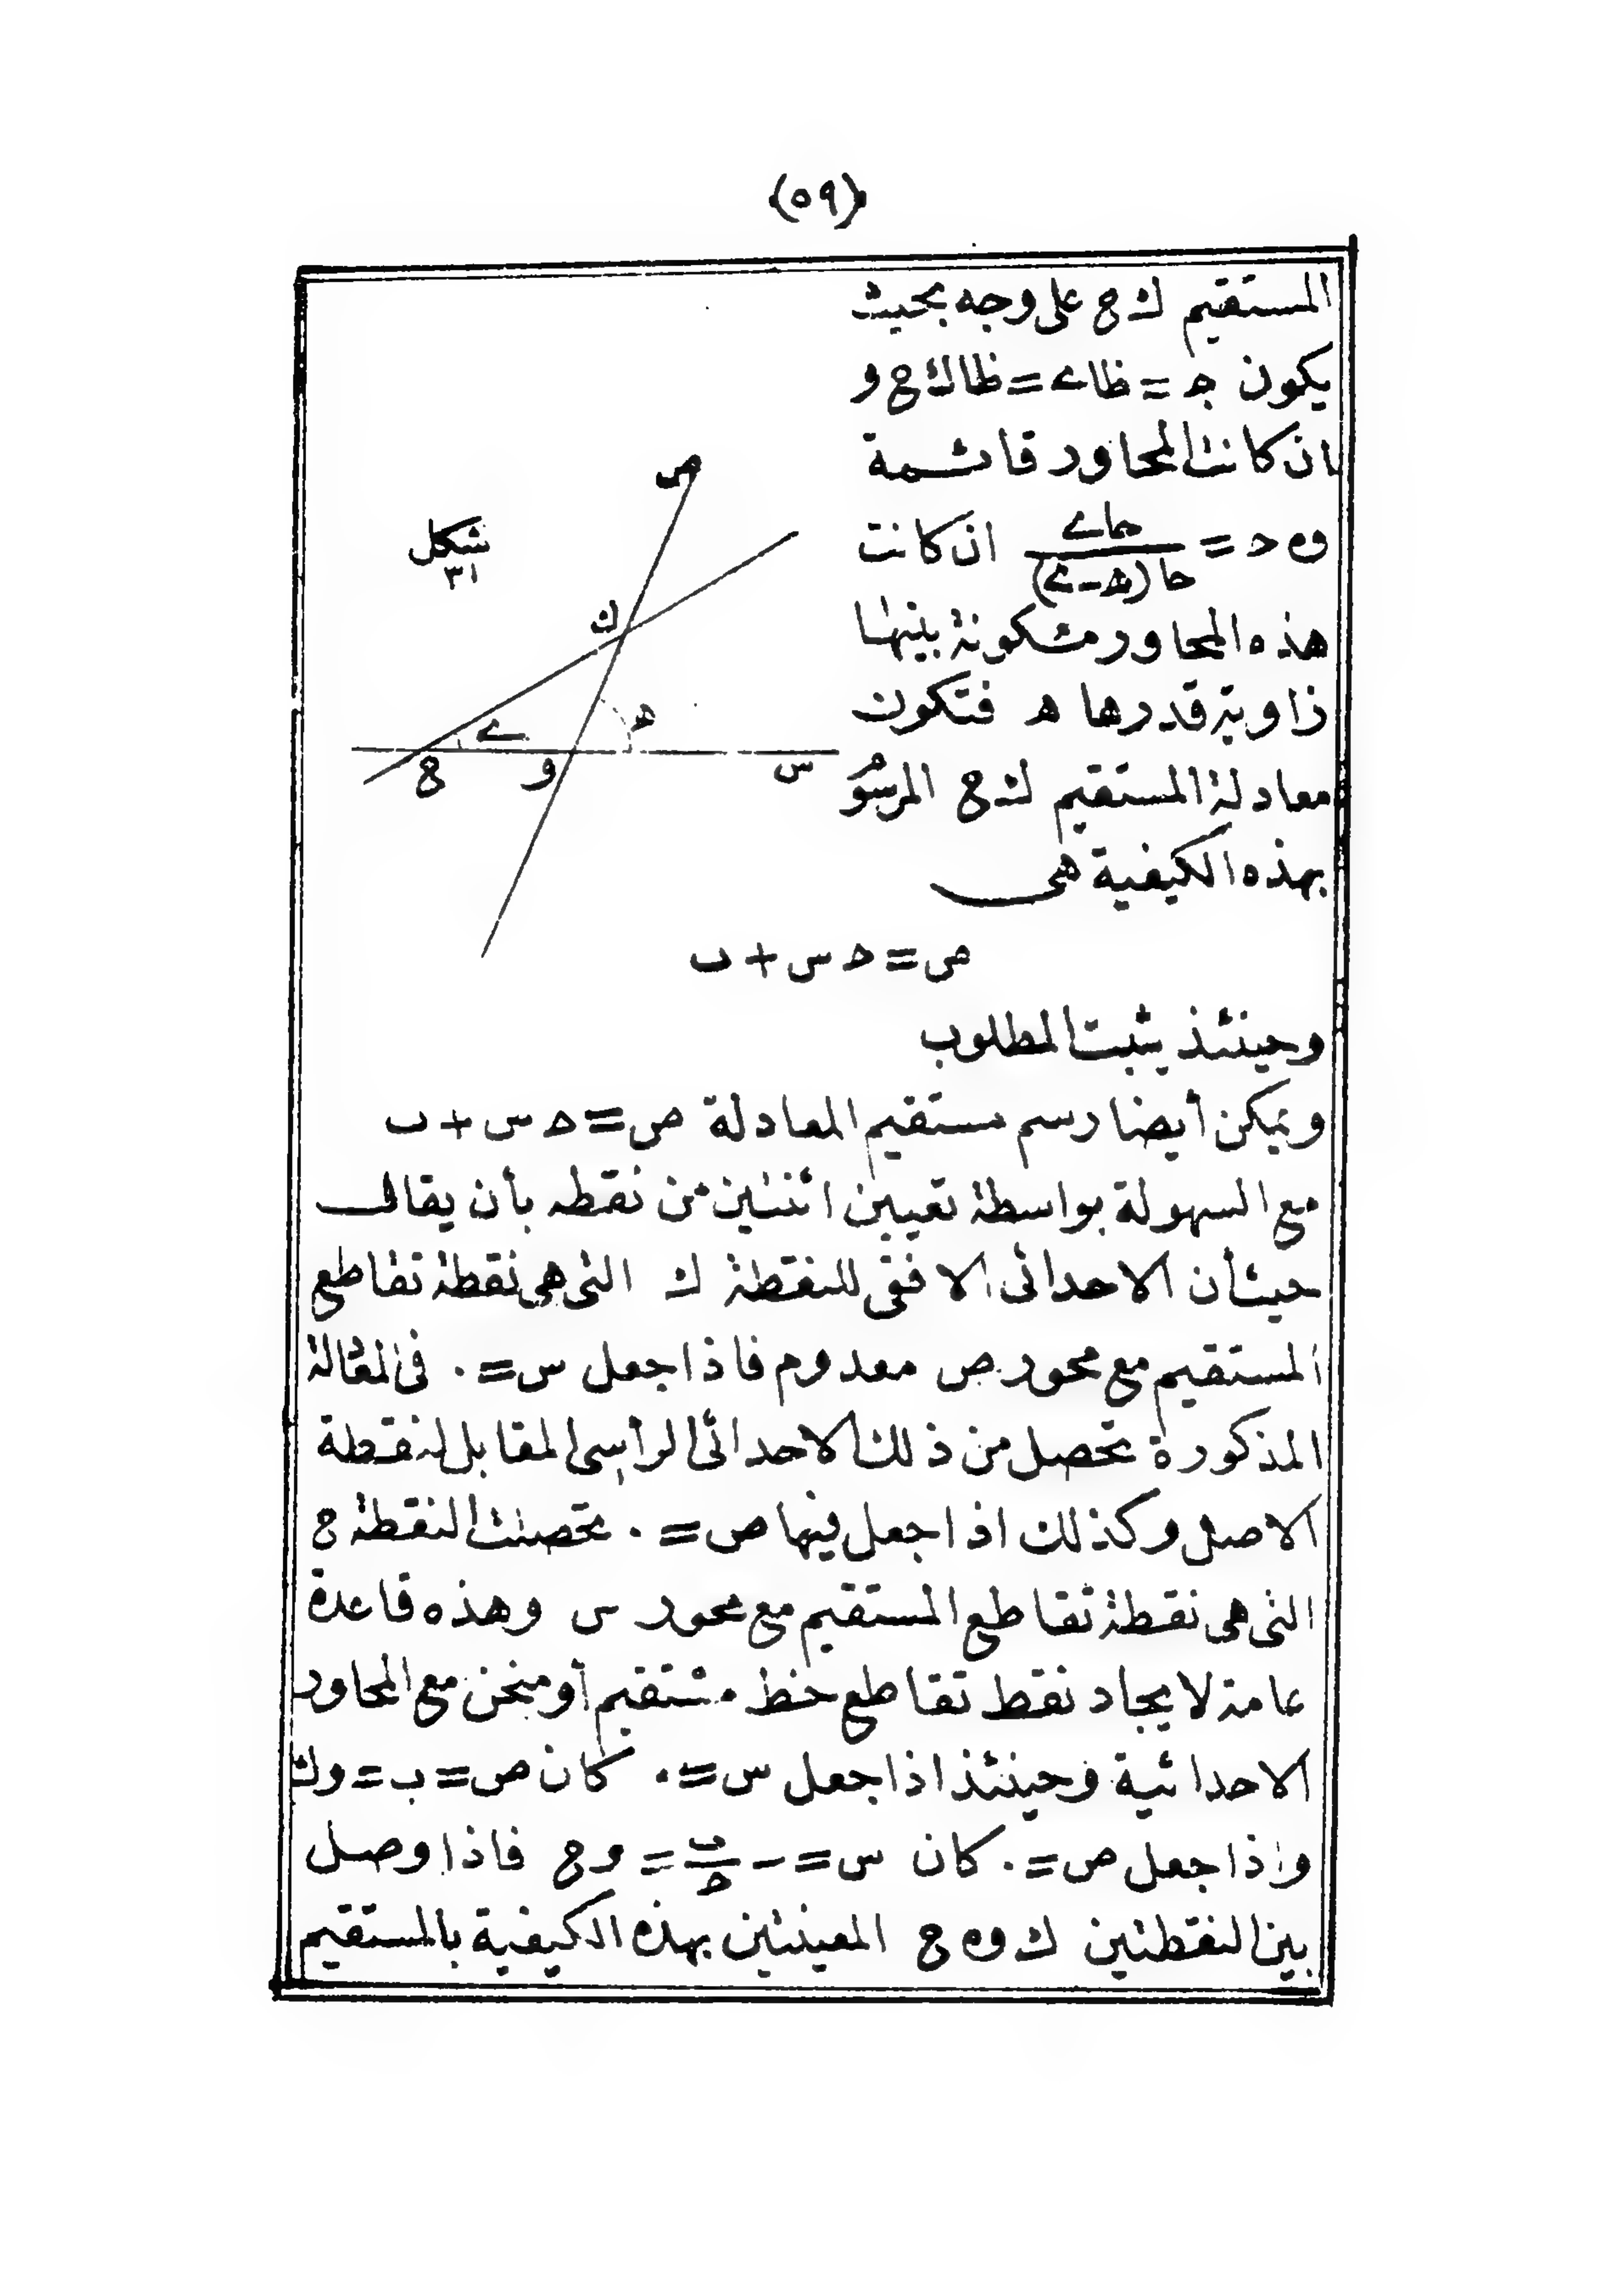 (٥٩)
المستقيم ك ح على وجه بحيث
يكون ح = ظا ے = ظا ك ح و
ان كانت المحاور قائمة
و ه ح = حاے / حا(ھ-ے) ان كانت
هذه المحاور متكونة بينها
زاوية قدرها ھ فتكون
معادلة المستقيم ك ح المرسوم
بهذه الكيفية هى
ص
شكل
٣١
ك
ھ
ے
ح
و
س
ص = ح س + ب
وحينئذ يثبت المطلوب
ويمكن أيضا رسم مستقيم المعادلة ص = ح س + ب
مع السهولة بواسطة تعيين اثنتين من نقطه بأن يقال
حيث أن الاحداثى الافقى للنقطة ك التى هى نقطة تقاطع
المستقيم مع محور ص معدوم فاذا جعل س = ٠ فى المعادلة
المذكورة تحصل من ذلك الاحداثى الرأسى المقابل لنقطة
الاصل وكذلك اذا جعل فيها ص = ٠ تحصلت النقطة ح
التى هى نقطة تقاطع المستقيم مع محور س وهذه قاعدة
عامة لايجاد نقط تقاطع خط مستقيم أو منحن مع المحاور
الاحداثية وحينئذ اذا جعل س = ٠ كان ص = ب = وك
واذا جعل ص = ٠ كان س = - ب/ح = و ح فاذا وصل
بين النقطتين ك و ه ح المعينتين بهذه الكيفية بالمستقيم